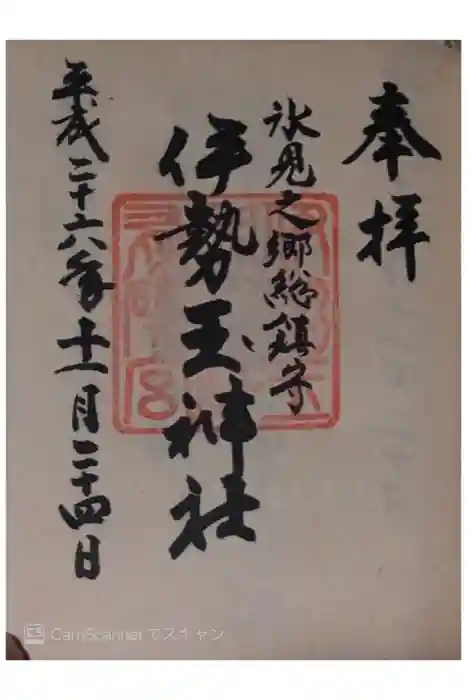 奉拝
氷見之郷総鎮守
伊勢玉神社
平成二十六年十一月二十四日
CamScannerでスキャン